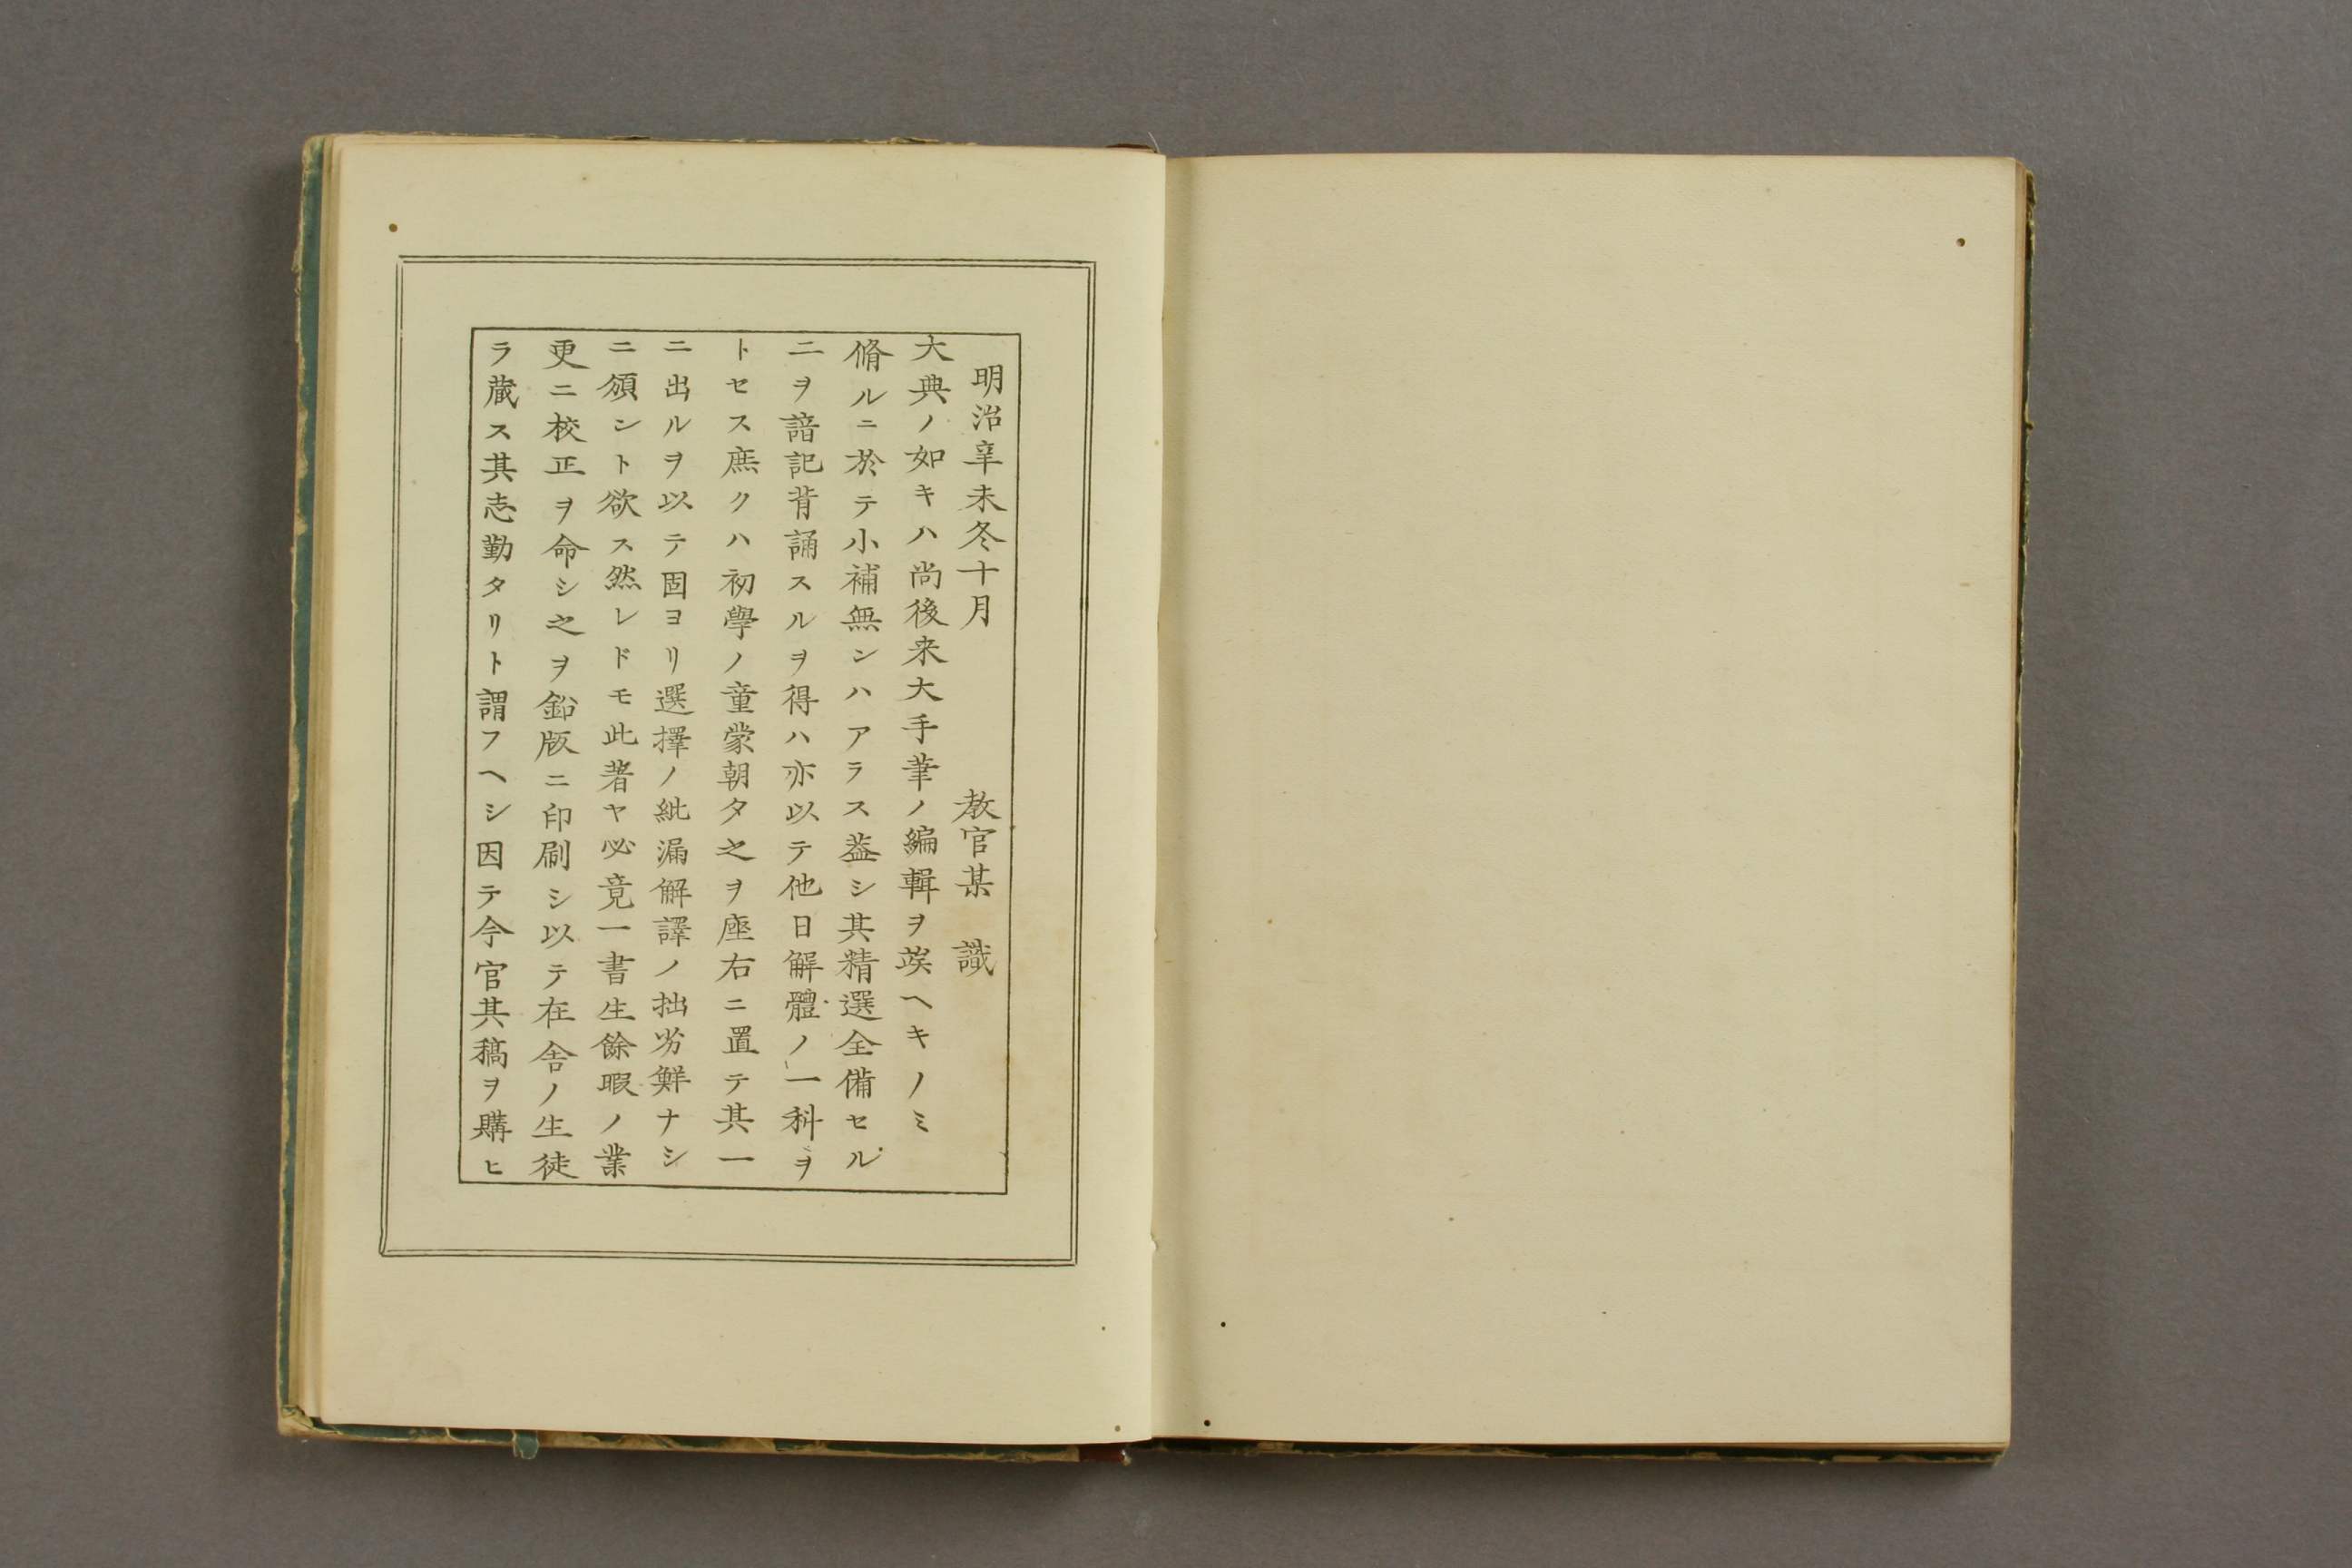 ラ蔵ス其志勤タリト謂フヘシ因テ今官其稿ヲ購ヒ
更ニ校正ヲ命シ之ヲ鉛版ニ印刷シ以テ在舎ノ生徒
ニ頒ント欲ス然レドモ此著ヤ必竟一書生餘暇ノ業
ニ出ルヲ以テ固ヨリ選擇ノ紕漏解譯ノ拙劣鮮ナシ
トセス庶クハ初學ノ童蒙朝夕之ヲ座右ニ置テ其一
二ヲ諳記背誦スルヲ得ハ亦以テ他日解體ノ一科ヲ
脩ルニ於テ小補無ンハアラス蓋シ其精選全備セル
大典ノ如キハ尚後来大手筆ノ編輯ヲ竢ヘキノミ
明治辛未冬十月 教官某 識